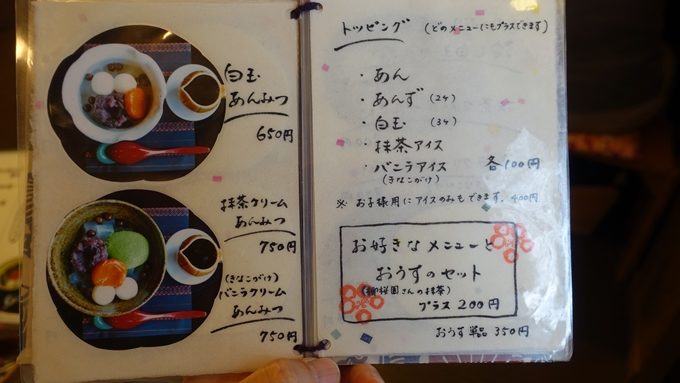 白玉
あんみつ
650円
抹茶クリーム
あんみつ
750円
(きなこがけ)
バニラクリーム
あんみつ
750円
トッピング (どのメニューにもプラスできます)
・あん
・あんず (2ヶ)
・白玉 (3ヶ)
・抹茶アイス
・バニラアイス 各100円
(きなこがけ)
※ お子様用にアイスのみもできます。400円
お好きなメニューと
おうすのセット
(柳桜園さんの抹茶)
プラス 200円
おうす単品 350円